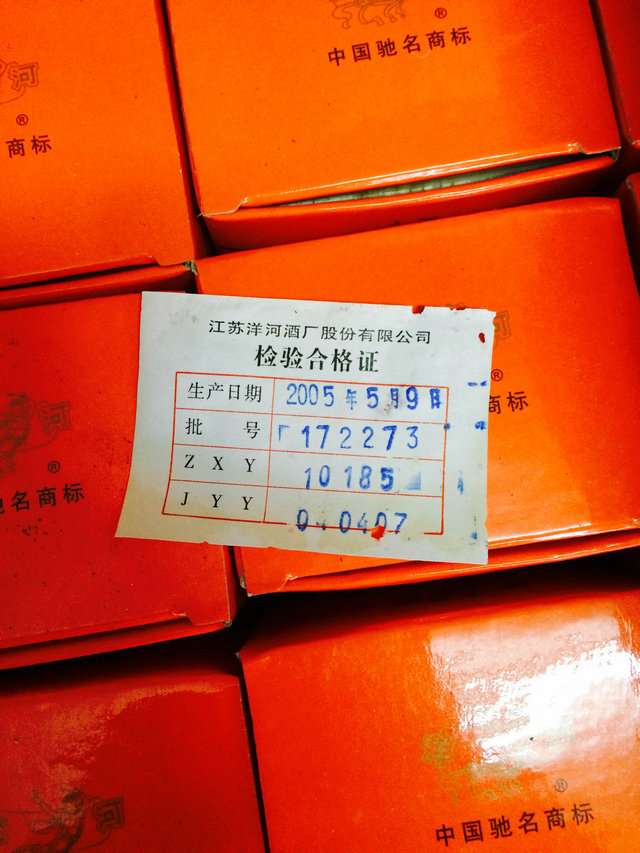 ®
中国驰名商标
河
®
商标
江苏洋河酒厂股份有限公司
检验合格证
生产日期 2005年5月9日
批 号 172273
Z X Y 10185
J Y Y 0 0407
®
商标
河
®
名商标
河
洋
®
中国驰名商标